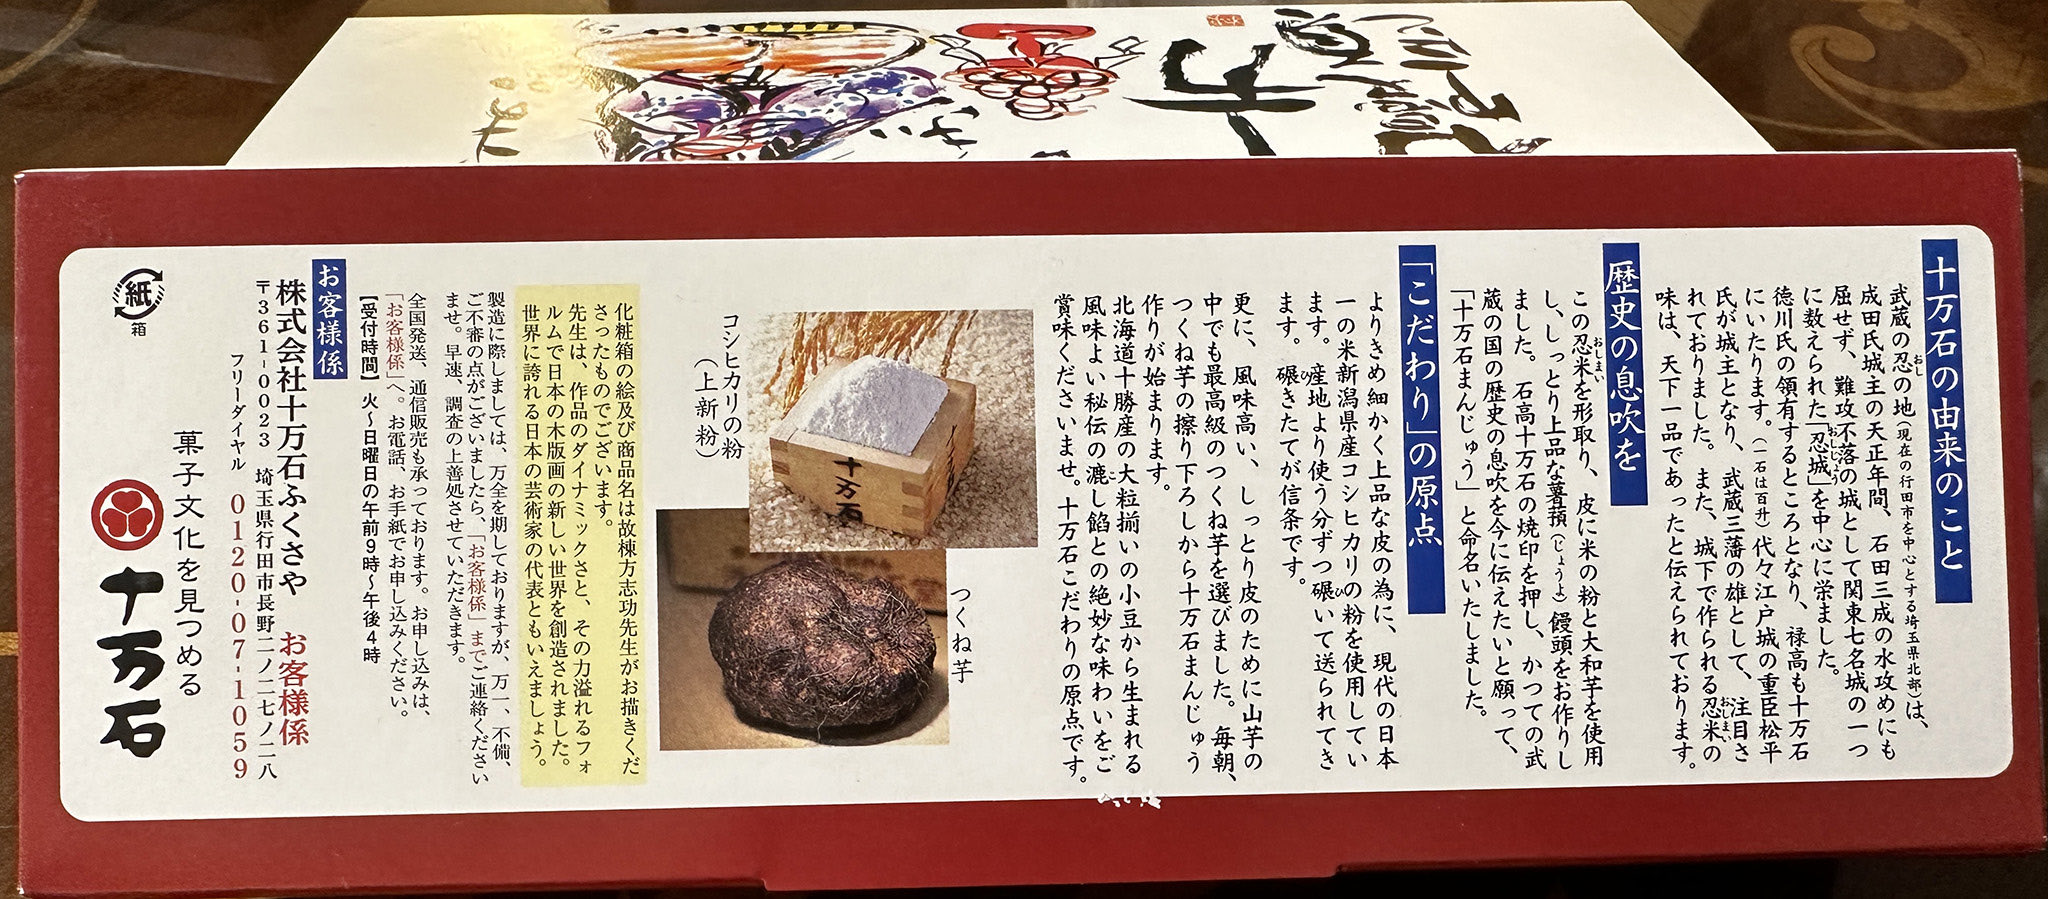 十万石の由来のこと
武蔵の忍の地(現在の行田市を中心とする埼玉県北部)は、
成田氏城主の天正年間、石田三成の水攻めにも
屈せず、難攻不落の城として関東七名城の一つ
に数えられた「忍城」を中心に栄ました。
徳川氏の領有するところとなり、禄高も十万石
にいたります。(一石は百升)代々江戸城の重臣松平
氏が城主となり、武蔵三藩の雄として、注目さ
れておりました。また、城下で作られる忍米の
味は、天下一品であったと伝えられております。
歴史の息吹を
この忍米を形取り、皮に米の粉と大和芋を使用
し、しっとり上品な薯蕷(じょうよ)饅頭をお作りし
ました。石高十万石の焼印を押し、かつての武
蔵の国の歴史の息吹を今に伝えたいと願って、
「十万石まんじゅう」と命名いたしました。
「こだわり」の原点
よりきめ細かく上品な皮の為に、現代の日本
一の米新潟県産コシヒカリの粉を使用してい
ます。産地より使う分ずつ碾いて送られてき
ます。碾きたてが信条です。
更に、風味高い、しっとり皮のために山芋の
中でも最高級のつくね芋を選びました。毎朝、
つくね芋の擦り下ろしから十万石まんじゅう
作りが始まります。
北海道十勝産の大粒揃いの小豆から生まれる
風味よい秘伝の漉し餡との絶妙な味わいをご
賞味くださいませ。十万石こだわりの原点です。
つくね芋
十万石
コシヒカリの粉
(上新粉)
化粧箱の絵及び商品名は故棟方志功先生がお描きくだ
さったものでございます。
先生は、作品のダイナミックさと、その力溢れるフォ
ルムで日本の木版画の新しい世界を創造されました。
世界に誇れる日本の芸術家の代表ともいえましょう。
製造に際しましては、万全を期しておりますが、万一、不備、
ご不審の点がございましたら、「お客様係」までご連絡ください
ませ。早速、調査の上善処させていただきます。
全国発送、通信販売も承っております。お申し込みは、
「お客様係」へ。お電話、お手紙でお申し込みください。
【受付時間】火〜日曜日の午前9時〜午後4時
お客様係
株式会社十万石ふくさや お客様係
〒361-0023 埼玉県行田市長野二ノ二七ノ二八
フリーダイヤル 0120-07-1059
菓子文化を見つめる
十万石
紙
箱